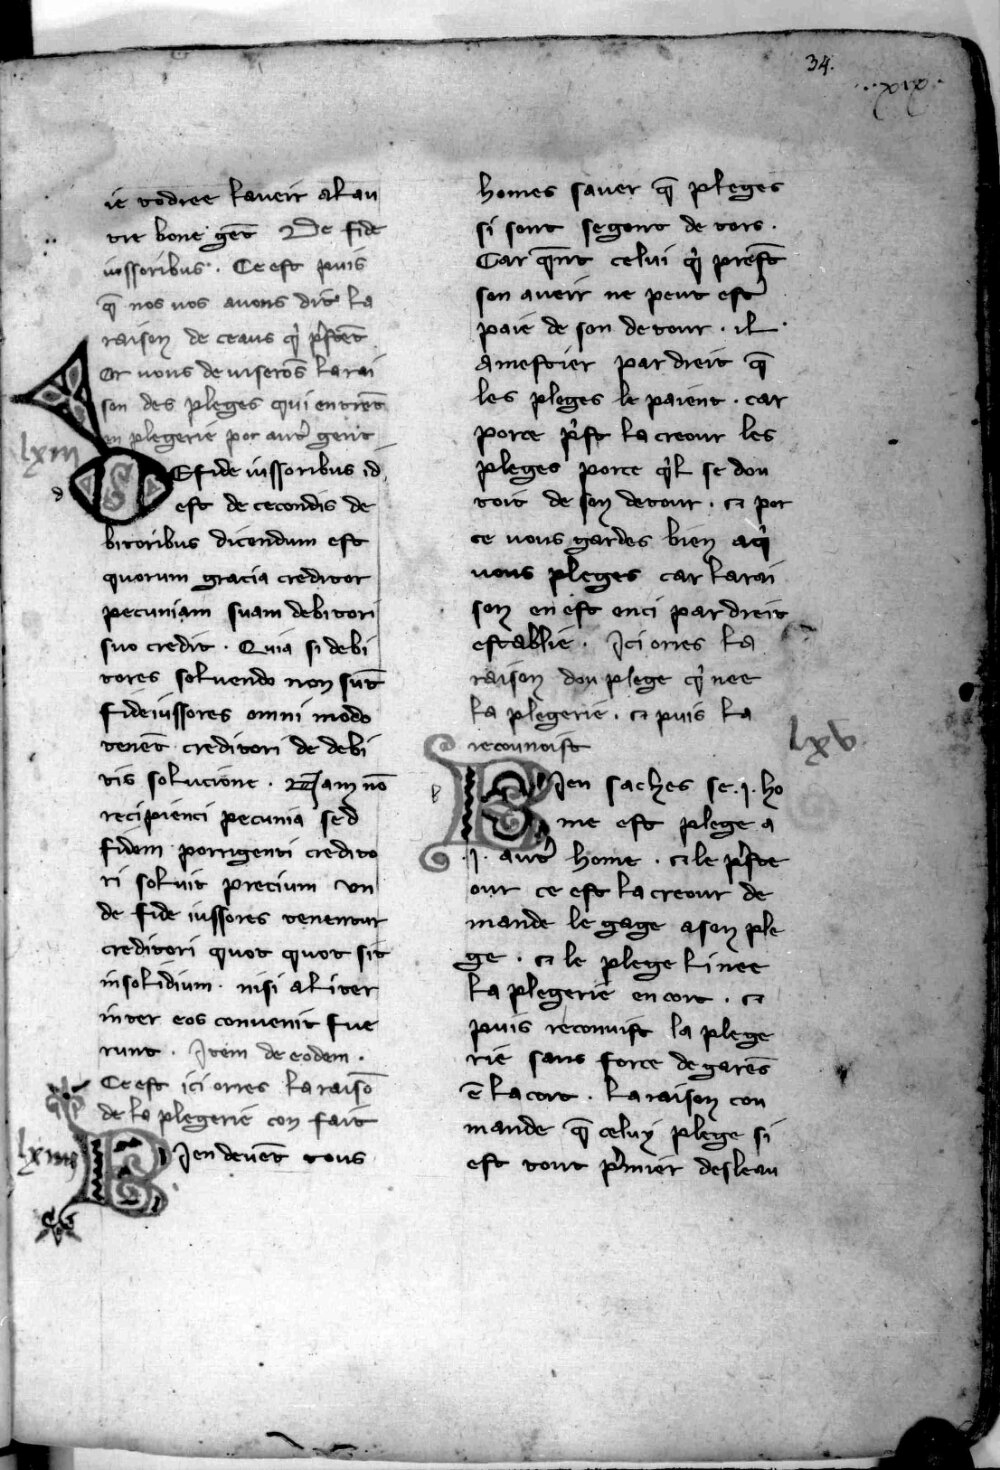 34.
xix.
ie vodree laveir al au
tre bone gēt De fide
iussoribus. Ce est puis
q̄ nos vos avons dit la
raison de ceaus q̇ p̄stēt
or vous deviserōs la rai
son des pleges qui entrēt
en plegerie por autr̄ gent
lxiii
d
DE fide iussoribus id
est de cecondis de
bitoribus dicendum est
quorum gracia creditor
pecuniam suam debitori
suo credit. Quia si debi
tores solvendo non sūt
fideiussores omni modo
tenēt creditori de debi
tis solucione. Nam nō
recipienci pecunia sed
fidem porrigenti credito
ri soluit precium un
de fide iussores tenentur
creditori quot quot sit
insolidium. nisi aliter
inter eos convenit fue
runt. Item de eodem.
Ce est ici orres la raisō
de la plegerie con fait
lxiiii
Bien devēt tous
homes saver q̄ pleges
si sont segont detors.
Car q̄nt celui q̇ prest
son aveir ne peut estr̄
paié de son detour. il
a mestier par dreit q̄
les pleges le paient. car
porce p̄st la creour les
pleges porce q̇l se dou
toit de son detour. et por
ce vous gardes bien a q̇
vous pleges car la rai
son en est enci par dreit
establie. Ici orres la
raison dou plege q̇ nee
la plegerie. et puis la
reconoist
lxv
b
Bien saches se .i. ho
me est plege a
.i. autr̄ home. et le p̄ste
our ce est la creour de
mande le gage a son ple
ge. et le plege li nee
la plegerie en cort. et
puis reconuist la plege
rie sans force de garēs
ē la cort. la raison con
mande q̄ celuy plege si
est tout p̄mier desleau